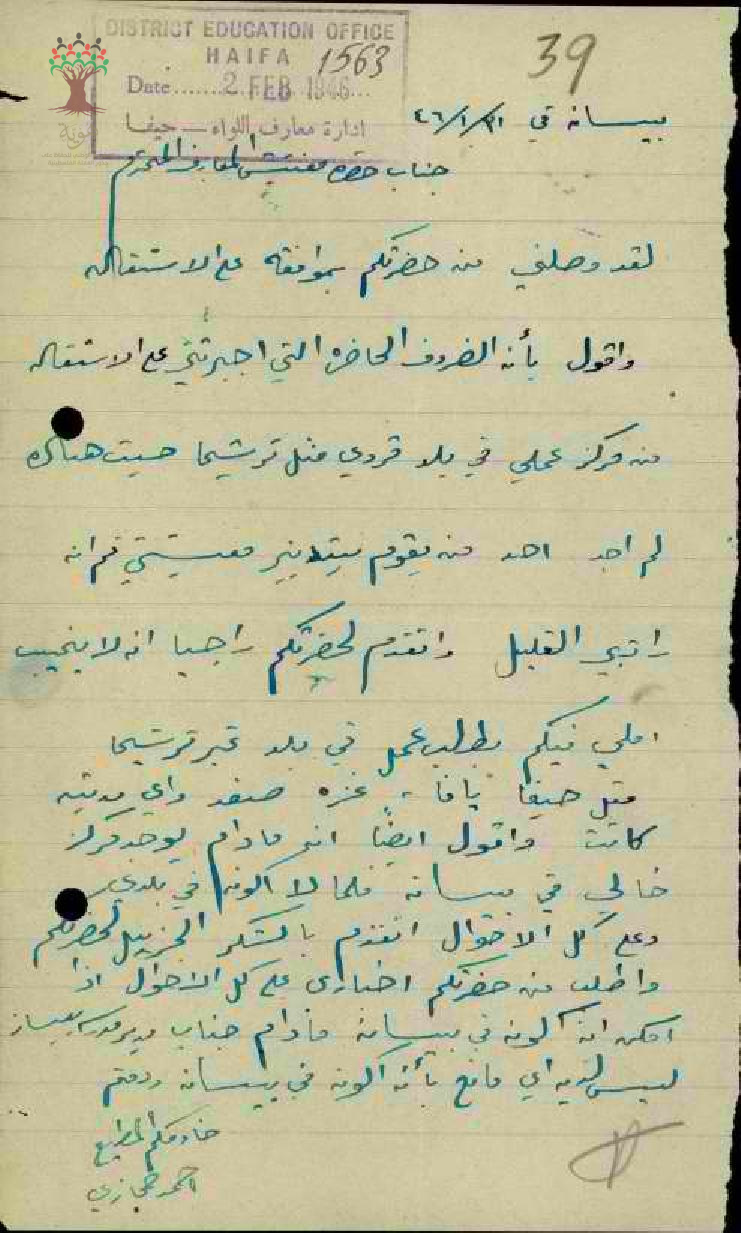 DISTRICT EDUCATION OFFICE
HAIFA
1563
39
Date ....... 2 FEB 1946 ...
ادارة معارف اللواء - حيفا
هوية
بيسان في ٤٦/١/٣١
جناب حضرة مفتش المعارف المحترم
لقد وصلني من حضرتكم بموافقه على الاستقاله
واقول بأن الضروف الحاضره التي اجبرتني على الاستقاله
من مركز عملي في بلد قروي مثل ترشيحا حيث هناك
لم اجد احد من يقوم بتدبير معيشتي ثم ان
راتبي القليل واتقدم لحضرتكم راجيا ان لا يخيب
املي فيكم بطلب عمل في بلد غير ترشيحا
مثل حيفا يافا غزه صفد واي مدينه
كانت واقول ايضاً انه مادام يوجد مركز
خالي في بيسان فلما لا اكون في بلدي
وعلى كل الاحوال اتقدم بالشكر الجزيل لحضرتكم
واطلب من حضرتكم اخباري على كل الاحوال اذا
امكن ان اكون في بيسان مادام جناب مدير مدرسة بيسان
ليس لديه اي مانع بأن اكون في بيسان ودمتم
خادمكم المطيع
احمد حجازي